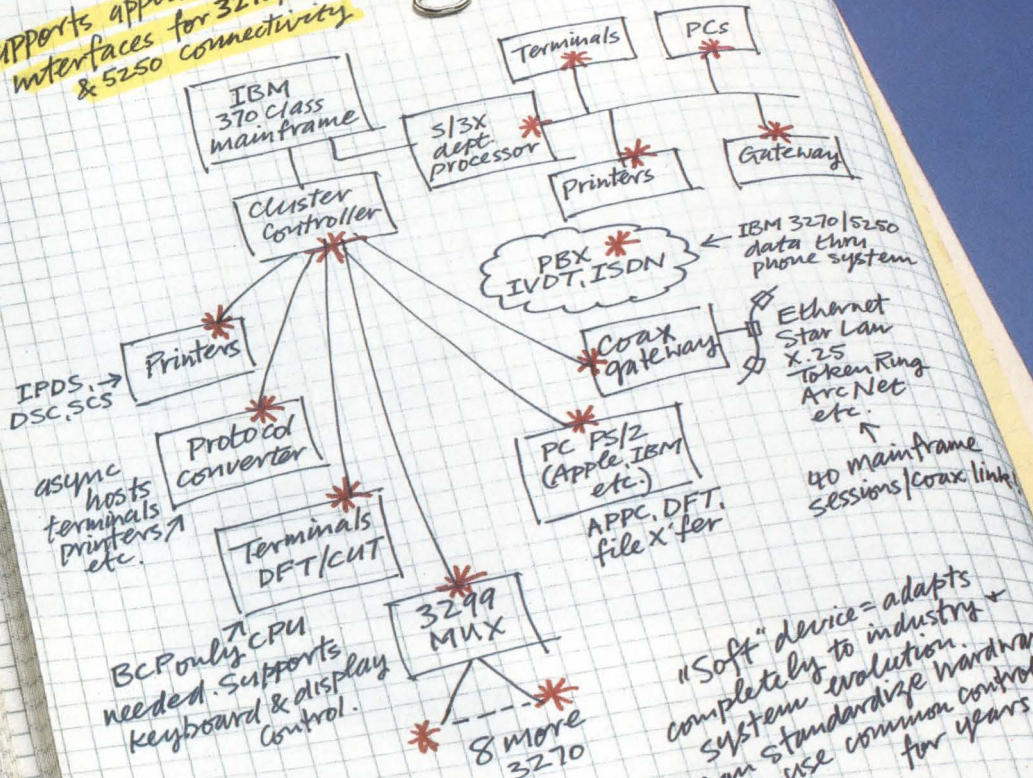 interfaces for 3270
& 5250 connectivity
IBM
370 Class
mainframe
S/3X
dept.
processor
Terminals
PCs
Printers
Gateway
Cluster
Controller
PBX
IVDT, ISDN
IBM 3270/5250
data thru
phone system
Printers
IPDS,
DSC, SCS
Coax
gateway
Ethernet
Star Lan
X.25
Token Ring
ArcNet
etc.
40 mainframe
sessions/coax link
Protocol
Converter
async
hosts
terminals
printers
etc.
PC PS/2
(Apple, IBM
etc.)
APPC, DFT,
file X'fer
Terminals
DFT/CUT
BCP only CPU
needed. Supports
keyboard & display
Control.
3299
MUX
8 more
3270
"Soft" device = adapts
completely to industry
system evolution.
standardize hardwa
use common contro
for years